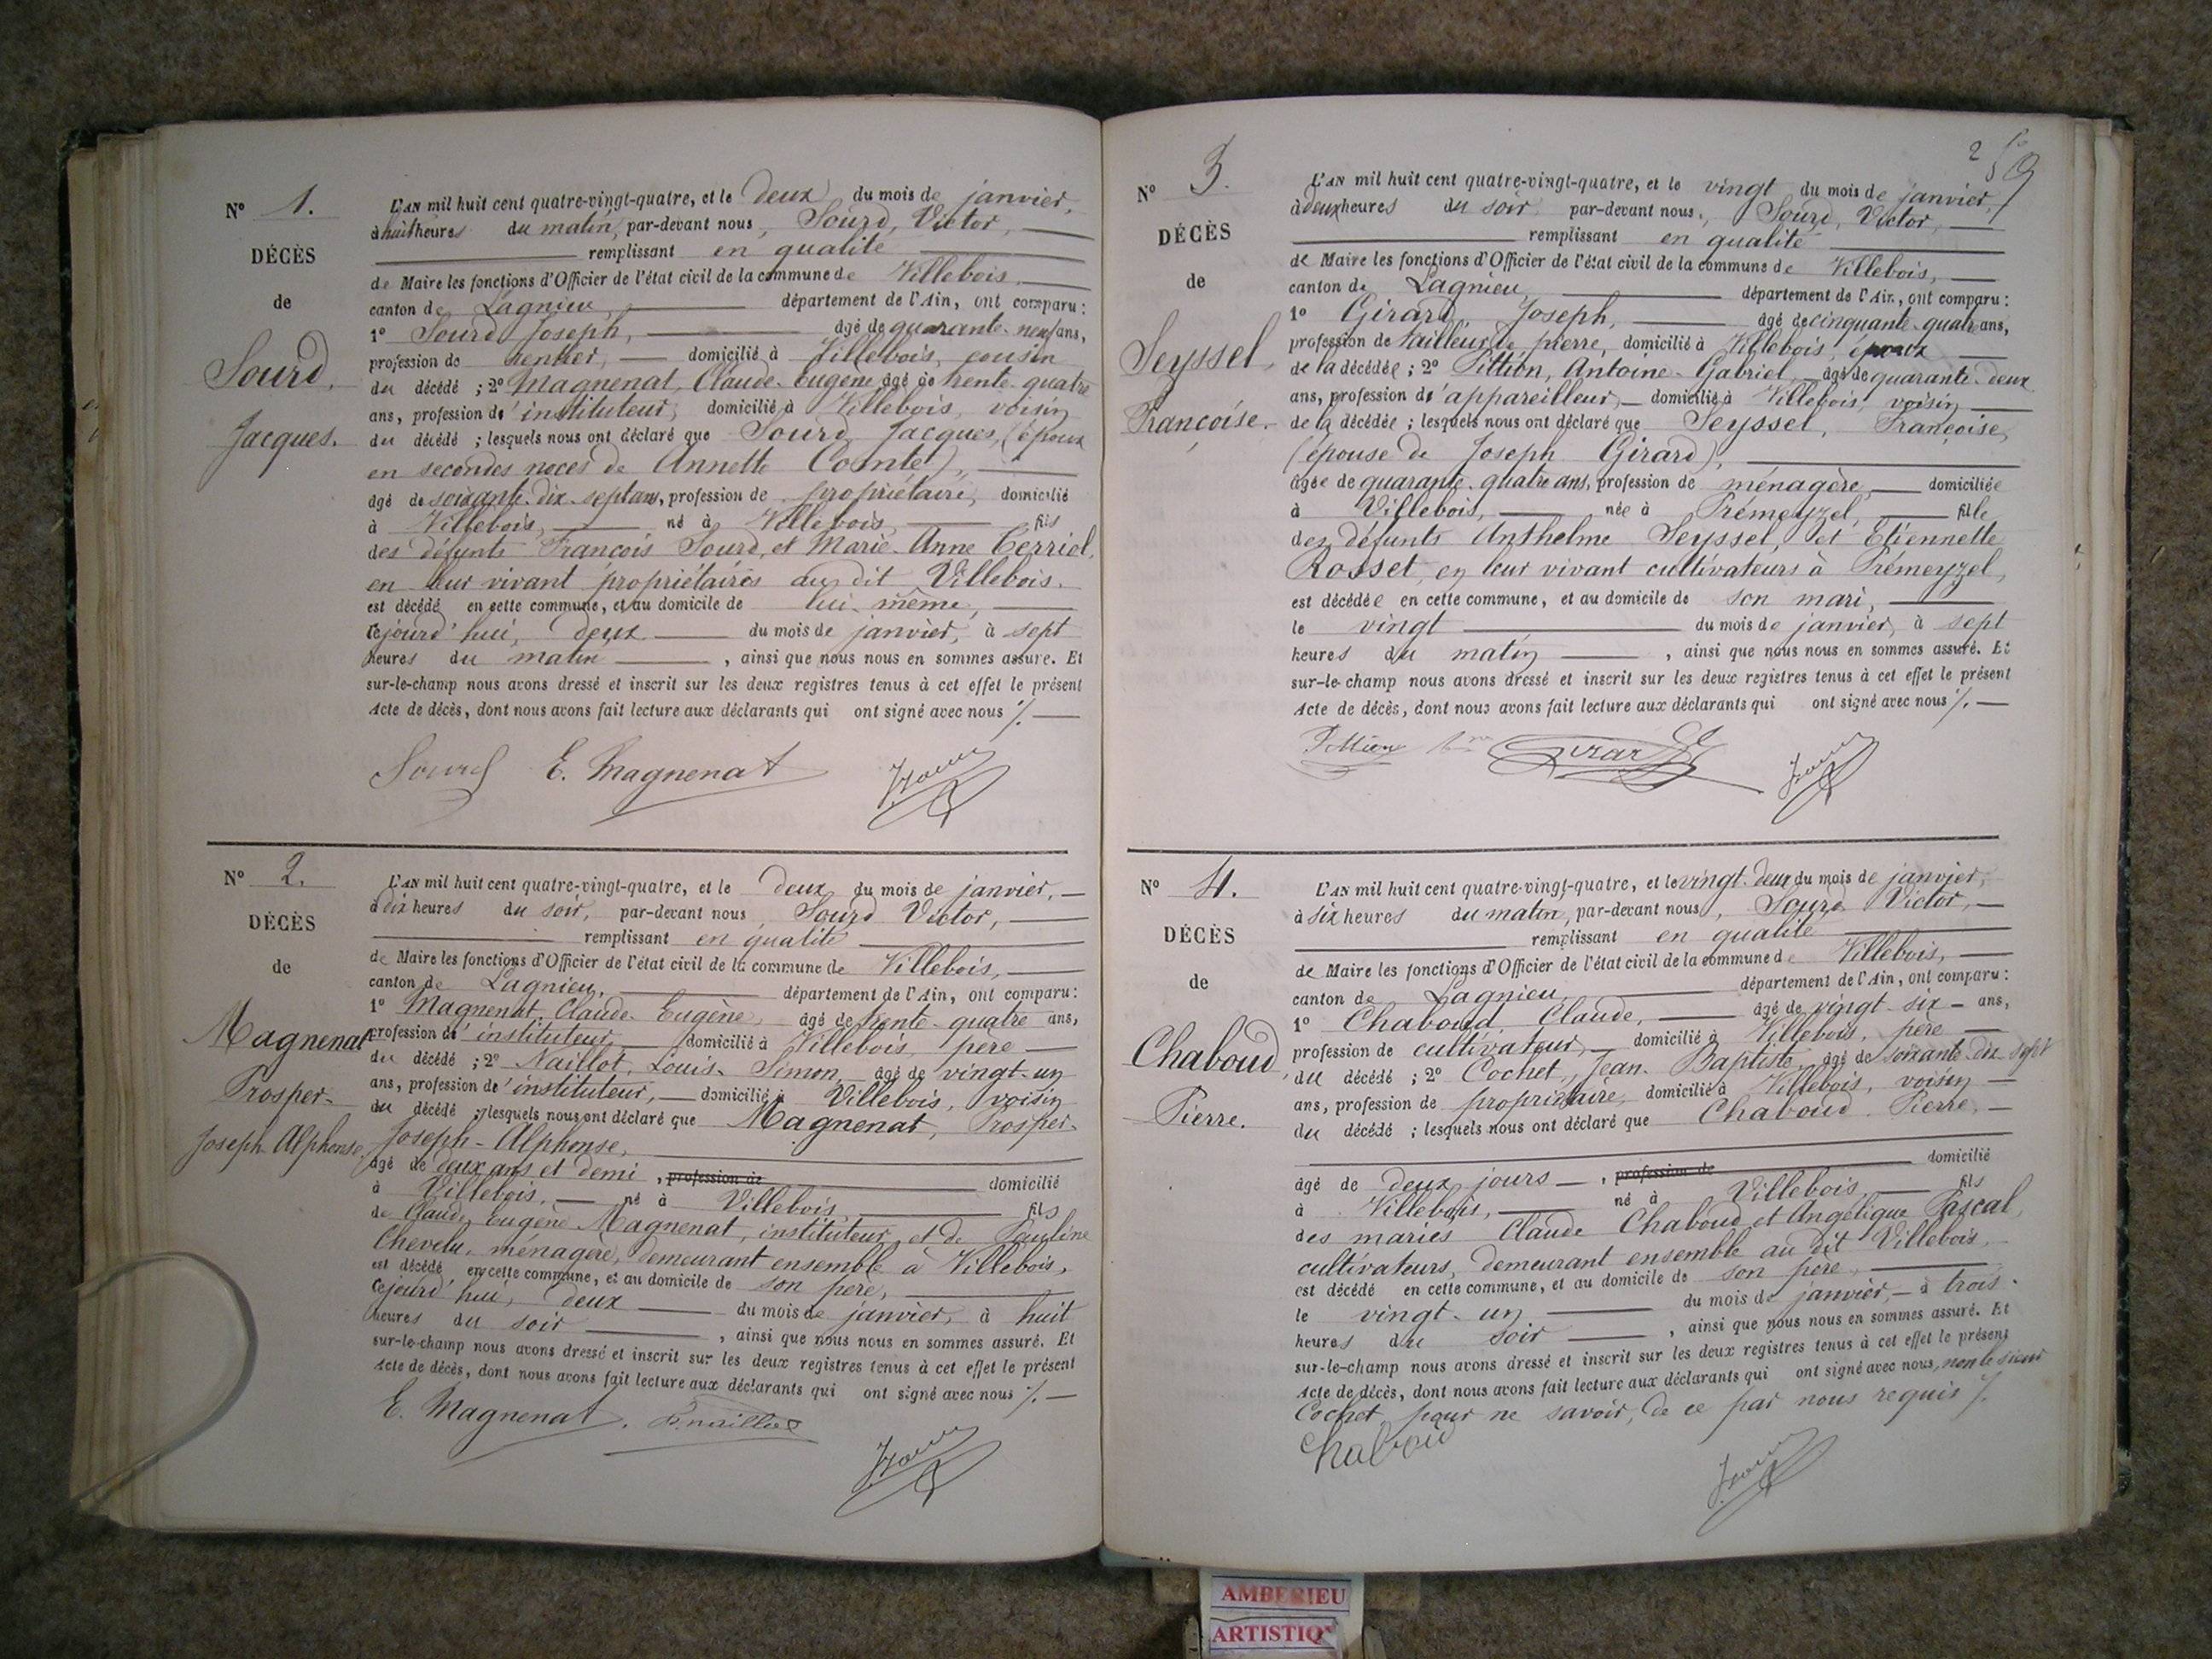 N° 1.
DÉCÈS
de
Sourd,
Jacques.
L'AN mil huit cent quatre-vingt-quatre, et le deux du mois de janvier,
à huit heures du matin, par-devant nous, Sourd, Victor,
remplissant en qualité
de Maire les fonctions d'Officier de l'état civil de la commune de Villebois,
canton de Lagnieu, département de l'Ain, ont comparu :
1° Sourd Joseph, âgé de quarante-neuf ans,
profession de rentier, domicilié à Villebois, cousin
du décédé ; 2° Magnenat, Claude-Eugène âgé de trente-quatre
ans, profession d'instituteur, domicilié à Villebois, voisin
du décédé ; lesquels nous ont déclaré que Sourd, Jacques, (époux
en secondes noces de Annette Comte),
âgé de soixante-dix-sept ans, profession de propriétaire, domicilié
à Villebois, né à Villebois, fils
des défunts François Sourd, et Marie-Anne Terriol,
en leur vivant propriétaires au dit Villebois.
est décédé en cette commune, et au domicile de lui-même,
cejourd'hui, deux du mois de janvier, à sept
heures du matin, ainsi que nous nous en sommes assuré. Et
sur-le-champ nous avons dressé et inscrit sur les deux registres tenus à cet effet le présent
Acte de décès, dont nous avons fait lecture aux déclarants qui ont signé avec nous /.
Sourd E. Magnenat
N° 2.
DÉCÈS
de
Magnenat
Prosper-
Joseph-Alphonse.
L'AN mil huit cent quatre-vingt-quatre, et le deux du mois de janvier,
à dix heures du soir, par-devant nous Sourd Victor,
remplissant en qualité
de Maire les fonctions d'Officier de l'état civil de la commune de Villebois,
canton de Lagnieu, département de l'Ain, ont comparu :
1° Magnenat, Claude-Eugène, âgé de trente-quatre ans,
profession d'instituteur, domicilié à Villebois, père
du décédé ; 2° Naillot, Louis-Simon, âgé de vingt-un
ans, profession d'instituteur, domicilié à Villebois, voisin
du décédé ; lesquels nous ont déclaré que Magnenat, Prosper-
Joseph-Alphonse,
âgé de deux ans et demi, profession de domicilié
à Villebois, né à Villebois, fils
de Claude Eugène Magnenat, instituteur, et de Pauline
Chevelu, ménagère, demeurant ensemble à Villebois,
est décédé en cette commune, et au domicile de son père,
cejourd'hui, deux du mois de janvier, à huit
heures du soir, ainsi que nous nous en sommes assuré. Et
sur-le-champ nous avons dressé et inscrit sur les deux registres tenus à cet effet le présent
Acte de décès, dont nous avons fait lecture aux déclarants qui ont signé avec nous /.
E. Magnenat.
259
N° 3.
DÉCÈS
de
Seyssel,
Françoise.
L'AN mil huit cent quatre-vingt-quatre, et le vingt du mois de janvier,
à deux heures du soir par-devant nous, Sourd, Victor,
remplissant en qualité
de Maire les fonctions d'Officier de l'état civil de la commune de Villebois,
canton de Lagnieu, département de l'Ain, ont comparu :
1° Girard, Joseph, âgé de cinquante-quatre ans,
profession de tailleur de pierre, domicilié à Villebois, époux
de la décédée ; 2° Pittion, Antoine-Gabriel, âgé de quarante-deux
ans, profession d'appareilleur, domicilié à Villebois, voisin
de la décédée ; lesquels nous ont déclaré que Seyssel, Françoise,
(épouse de Joseph Girard),
âgée de quarante-quatre ans, profession de ménagère, domiciliée
à Villebois, née à Trémeyzel, fille
des défunts Anthelme Seyssel, et Etiennette
Rosset, en leur vivant cultivateurs à Trémeyzel,
est décédée en cette commune, et au domicile de son mari,
le vingt du mois de janvier, à sept
heures du matin, ainsi que nous nous en sommes assuré. Et
sur-le-champ nous avons dressé et inscrit sur les deux registres tenus à cet effet le présent
Acte de décès, dont nous avons fait lecture aux déclarants qui ont signé avec nous /.
Pittion Girard
N° 4.
DÉCÈS
de
Chaboud,
Pierre.
L'AN mil huit cent quatre-vingt-quatre, et le vingt-deux du mois de janvier,
à six heures du matin, par-devant nous, Sourd Victor,
remplissant en qualité
de Maire les fonctions d'Officier de l'état civil de la commune de Villebois,
canton de Lagnieu, département de l'Ain, ont comparu :
1° Chaboud, Claude, âgé de vingt-six ans,
profession de cultivateur, domicilié à Villebois, père
du décédé ; 2° Cochet, Jean-Baptiste, âgé de soixante-dix-sept
ans, profession de propriétaire, domicilié à Villebois, voisin
du décédé ; lesquels nous ont déclaré que Chaboud, Pierre,
domicilié
âgé de deux jours, profession de
à Villebois, né à Villebois, fils
des mariés Claude Chaboud et Angélique Pascal,
cultivateurs, demeurant ensemble au dit Villebois,
est décédé en cette commune, et au domicile de son père,
le vingt-un du mois de janvier, à trois
heures du soir, ainsi que nous nous en sommes assuré. Et
sur-le-champ nous avons dressé et inscrit sur les deux registres tenus à cet effet le présent
Acte de décès, dont nous avons fait lecture aux déclarants qui ont signé avec nous, non le sieur
Cochet pour ne savoir, de ce par nous requis /.
Chaboud
AMBERIEU
ARTISTIQ